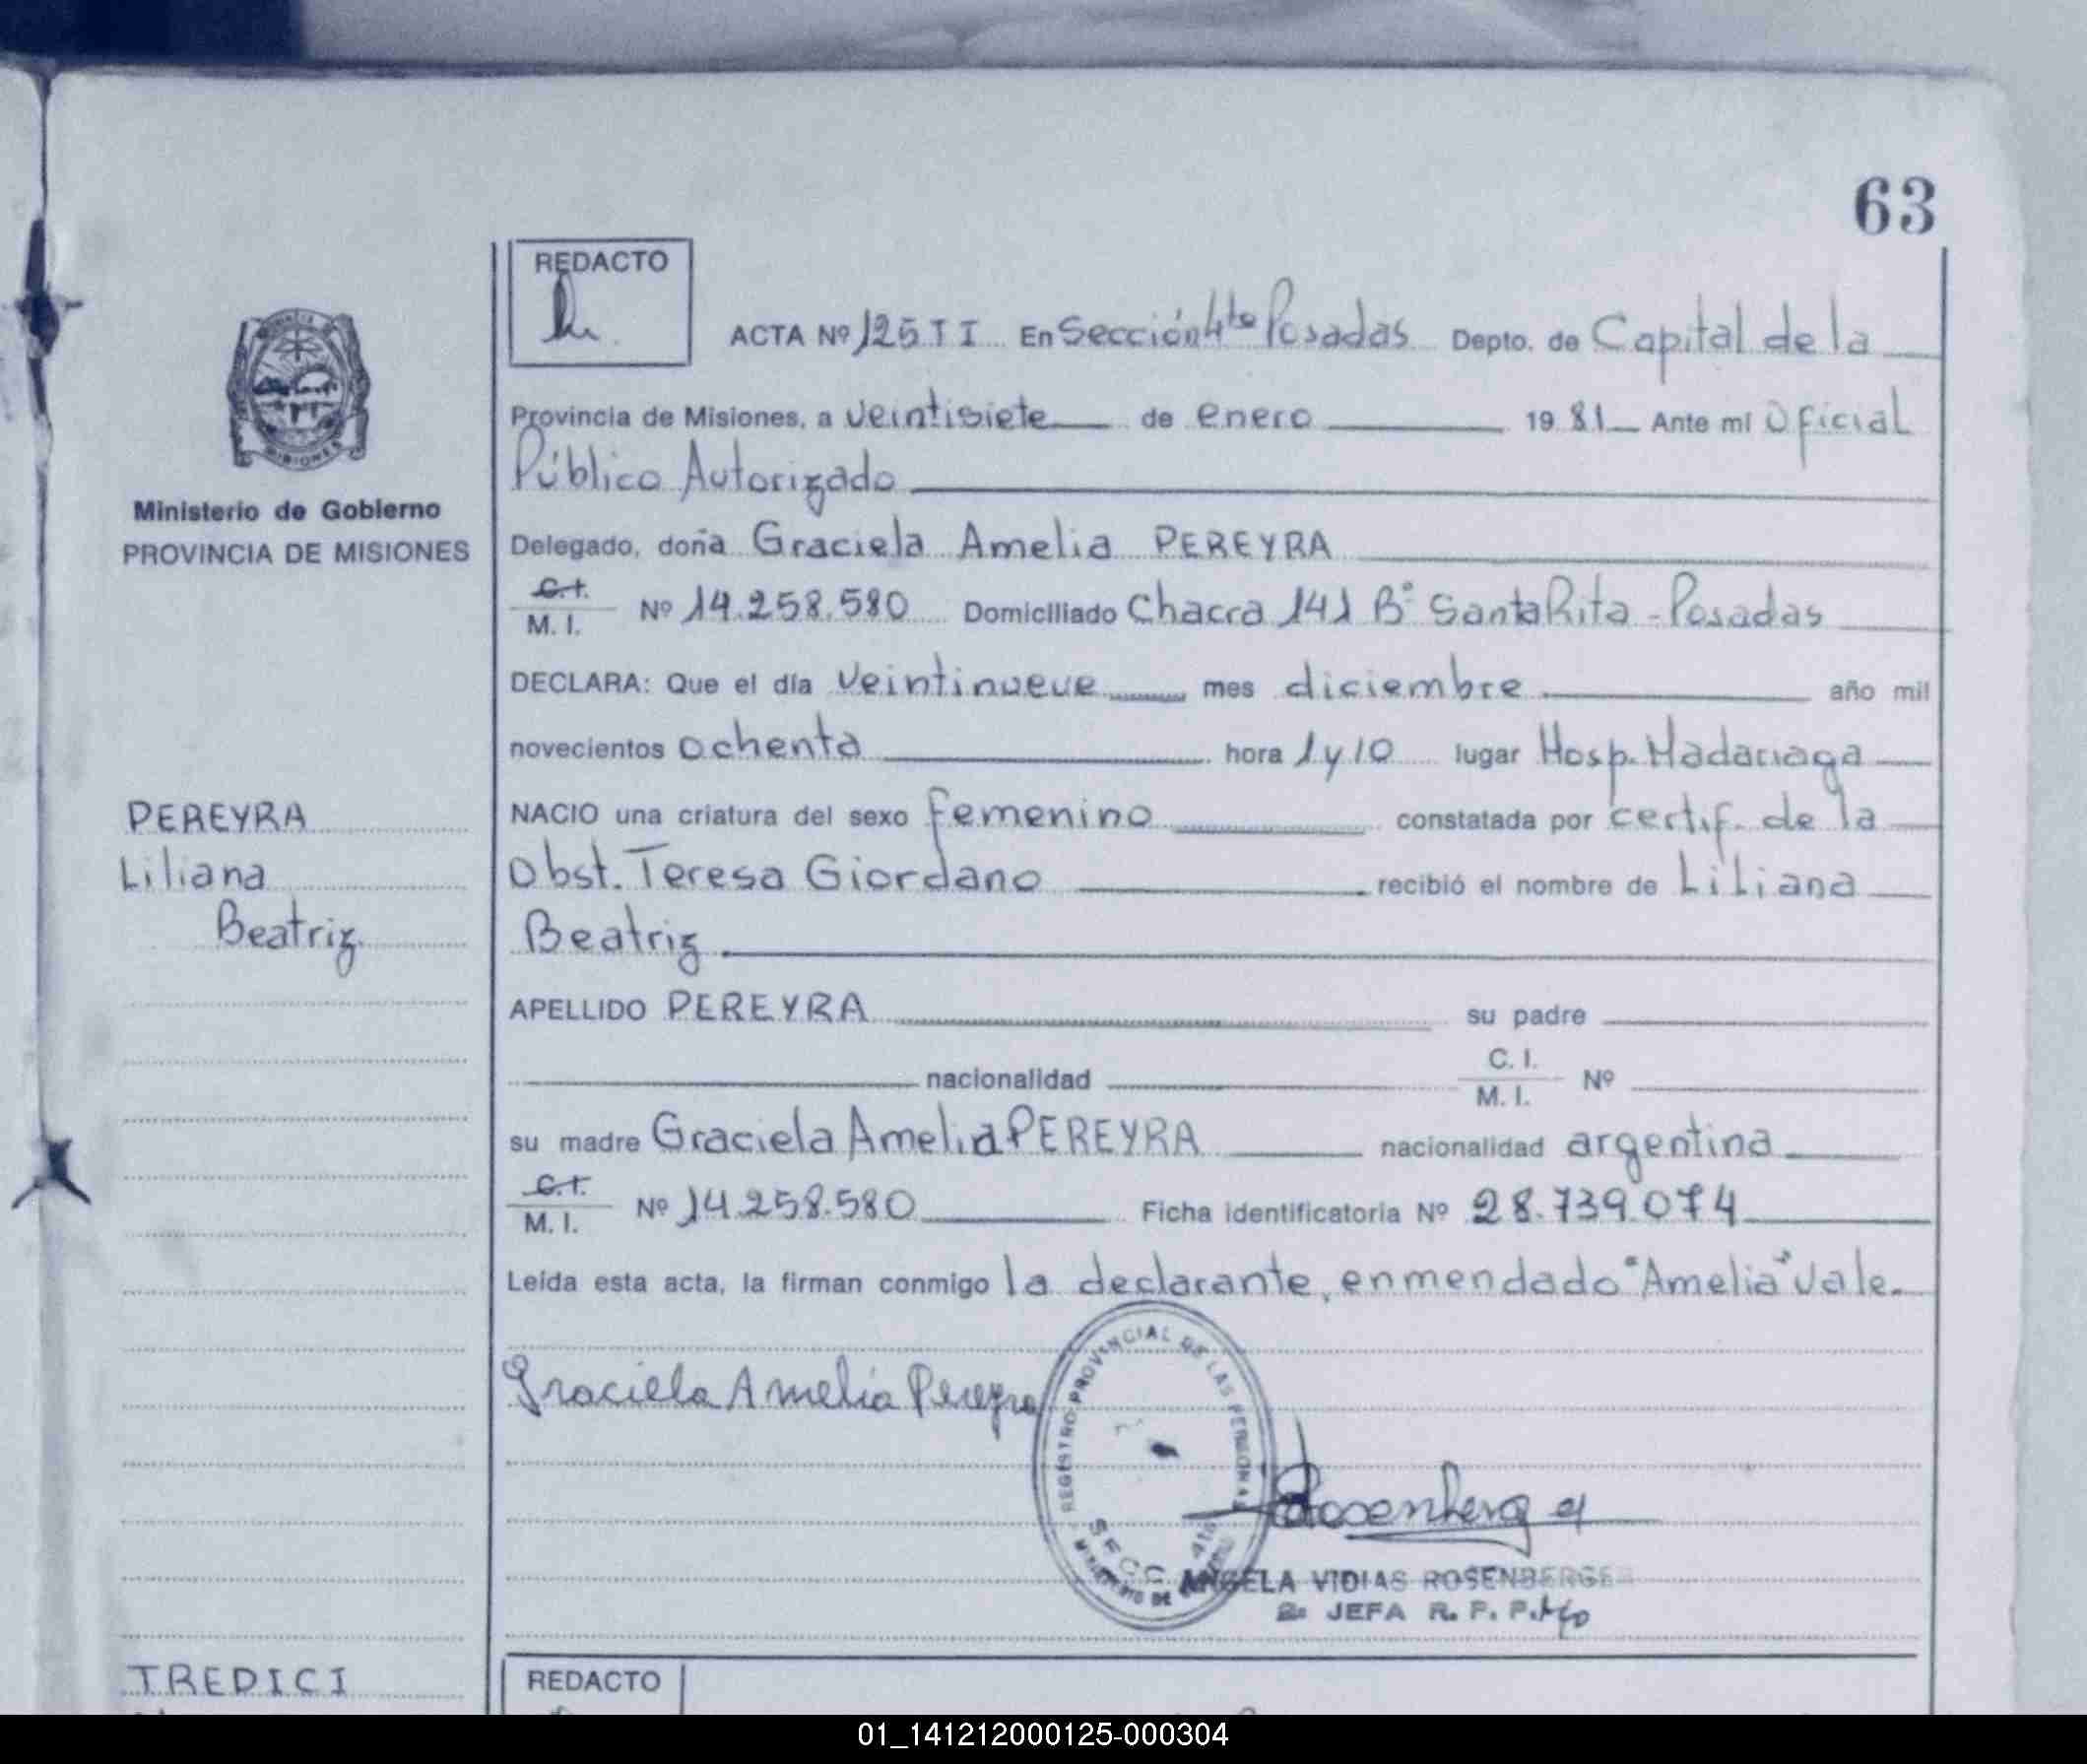 63
REDACTO
ACTA Nº 125 T I En Sección 4ta Posadas Depto. de Capital de la
Provincia de Misiones, a veintisiete de enero 19 81 Ante mí Oficial
Público Autorizado
Ministerio de Gobierno
PROVINCIA DE MISIONES
Delegado, doña Graciela Amelia PEREYRA
C.I.
M. I. Nº 14.258.580 Domiciliado Chacra 141 Bº Santa Rita - Posadas
DECLARA: Que el día veintinueve mes diciembre año mil
novecientos ochenta hora 1 y 10 lugar Hosp. Madariaga
PEREYRA
Liliana
Beatriz
NACIO una criatura del sexo femenino constatada por certif. de la
Obst. Teresa Giordano recibió el nombre de Liliana
Beatriz
APELLIDO PEREYRA su padre
nacionalidad C. I.
M. I. Nº
su madre Graciela Amelia PEREYRA nacionalidad argentina
C.I.
M. I. Nº 14.258.580 Ficha identificatoria Nº 28.739.074
Leída esta acta, la firman conmigo la declarante, enmendado "Amelia" vale.
Graciela Amelia Pereyra
REGISTRO PROVINCIAL DE LAS PERSONAS
SECC 4ta
MINISTERIO DE
Rosenberg
ANGELA VIDIAS ROSENBERGER
JEFA R. P. P.
TREDICI
REDACTO
01_141212000125-000304